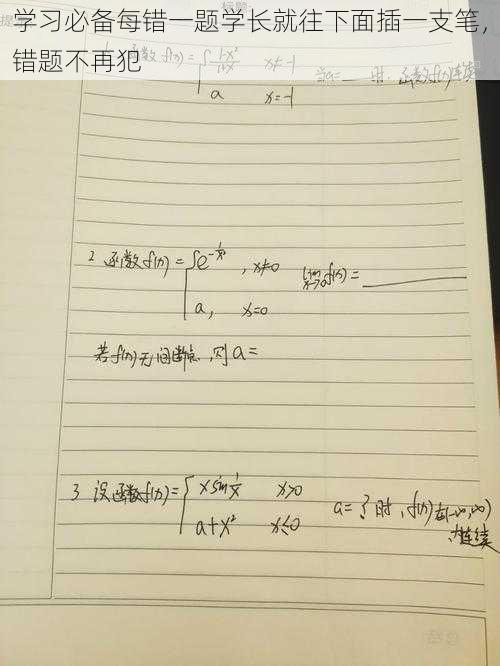 学习必备每错一题学长就往下面插一支笔，
错题不再犯
函数 f(x) = { 1-x²/1+x x≠-1
a x=-1
当a=___时，函数f(x)连续
2 函数f(x) = { e^-1/x² , x≠0 lim x→0 f(x) = ______
a, x=0
若f(x)无间断点，则a=
3 设函数f(x) = { x sin 1/x x>0
a+x² x≤0
a=？时，f(x)在(-∞,∞)
内连续